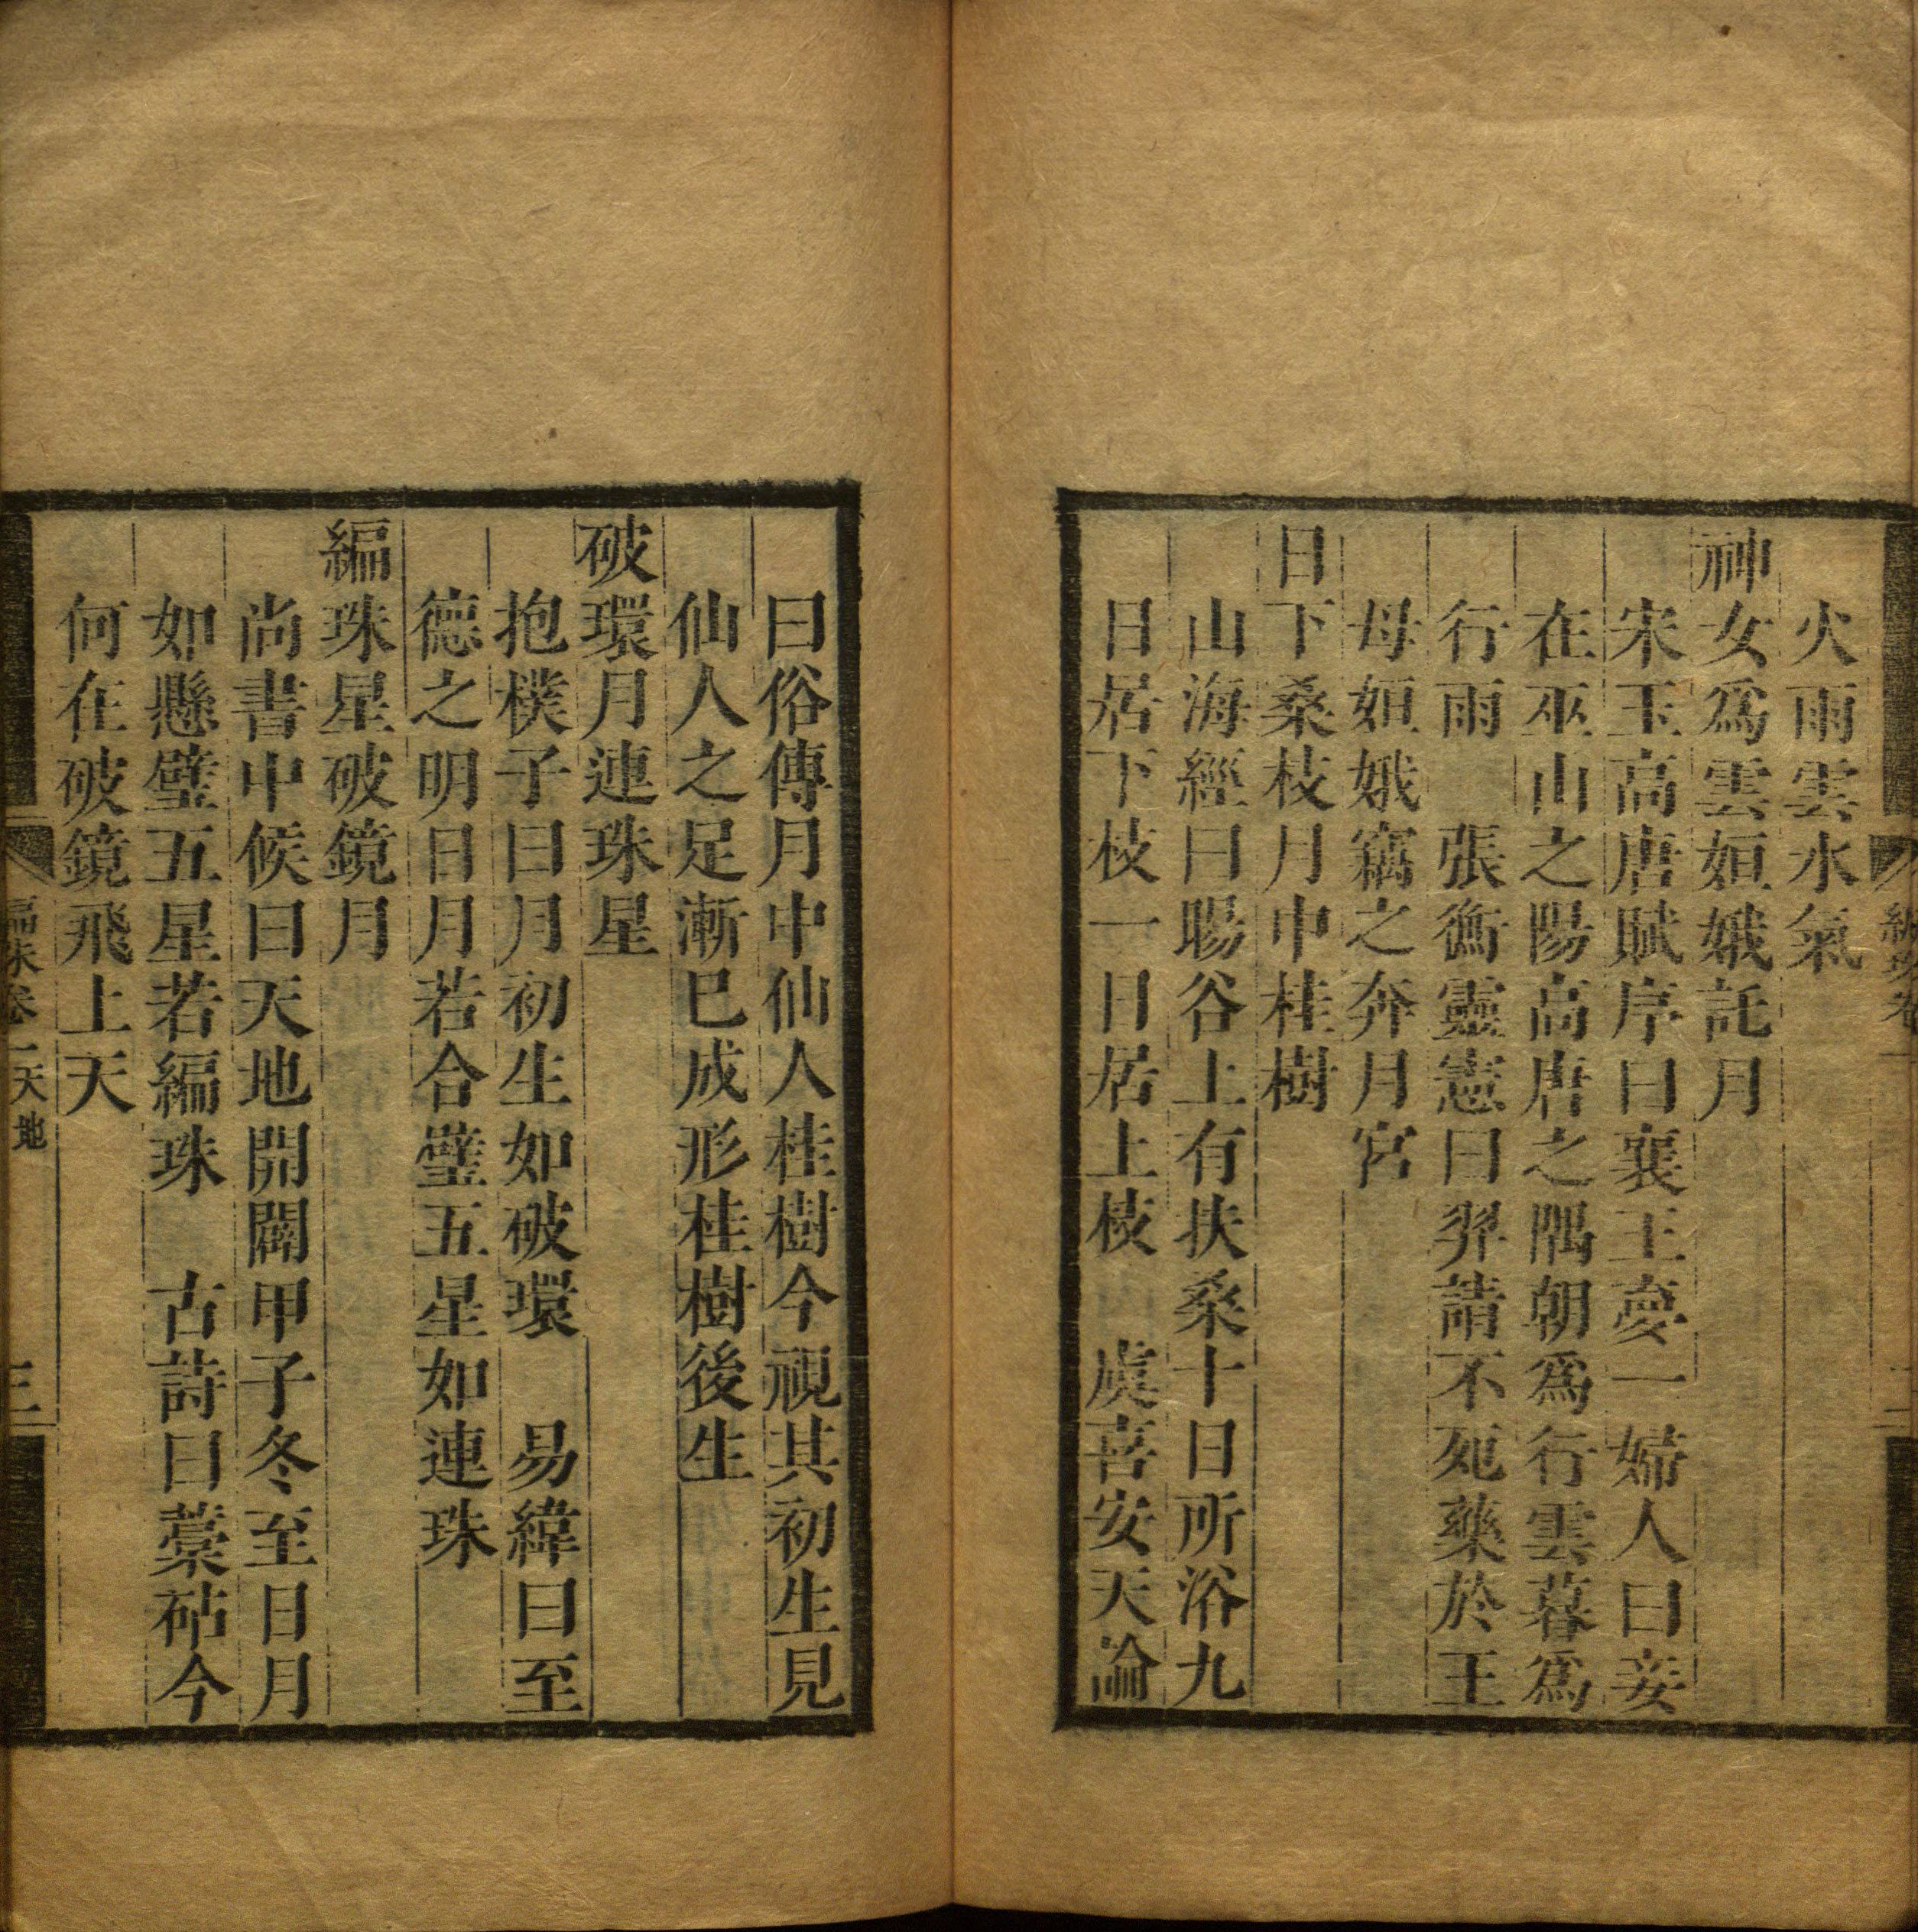 火雨雲水氣
神女爲雲姮娥託月
宋玉高唐賦序曰襄王夢一婦人曰妾
在巫山之陽高唐之隅朝爲行雲暮爲
行雨　張衡靈憲曰羿請不死藥於王
母姮娥竊之奔月宮
日下桑枝月中桂樹
山海經曰暘谷上有扶桑十日所浴九
日居下枝一日居上枝　虞喜安天論
曰俗傳月中仙人桂樹今視其初生見
仙人之足漸巳成形桂樹後生
破環月連珠星
抱樸子曰月初生如破環　易緯曰至
德之明日月若合璧五星如連珠
編珠星破鏡月
尚書中候曰天地開闢甲子冬至日月
如懸璧五星若編珠　古詩曰藁砧今
何在破鏡飛上天
編珠卷一天地
三